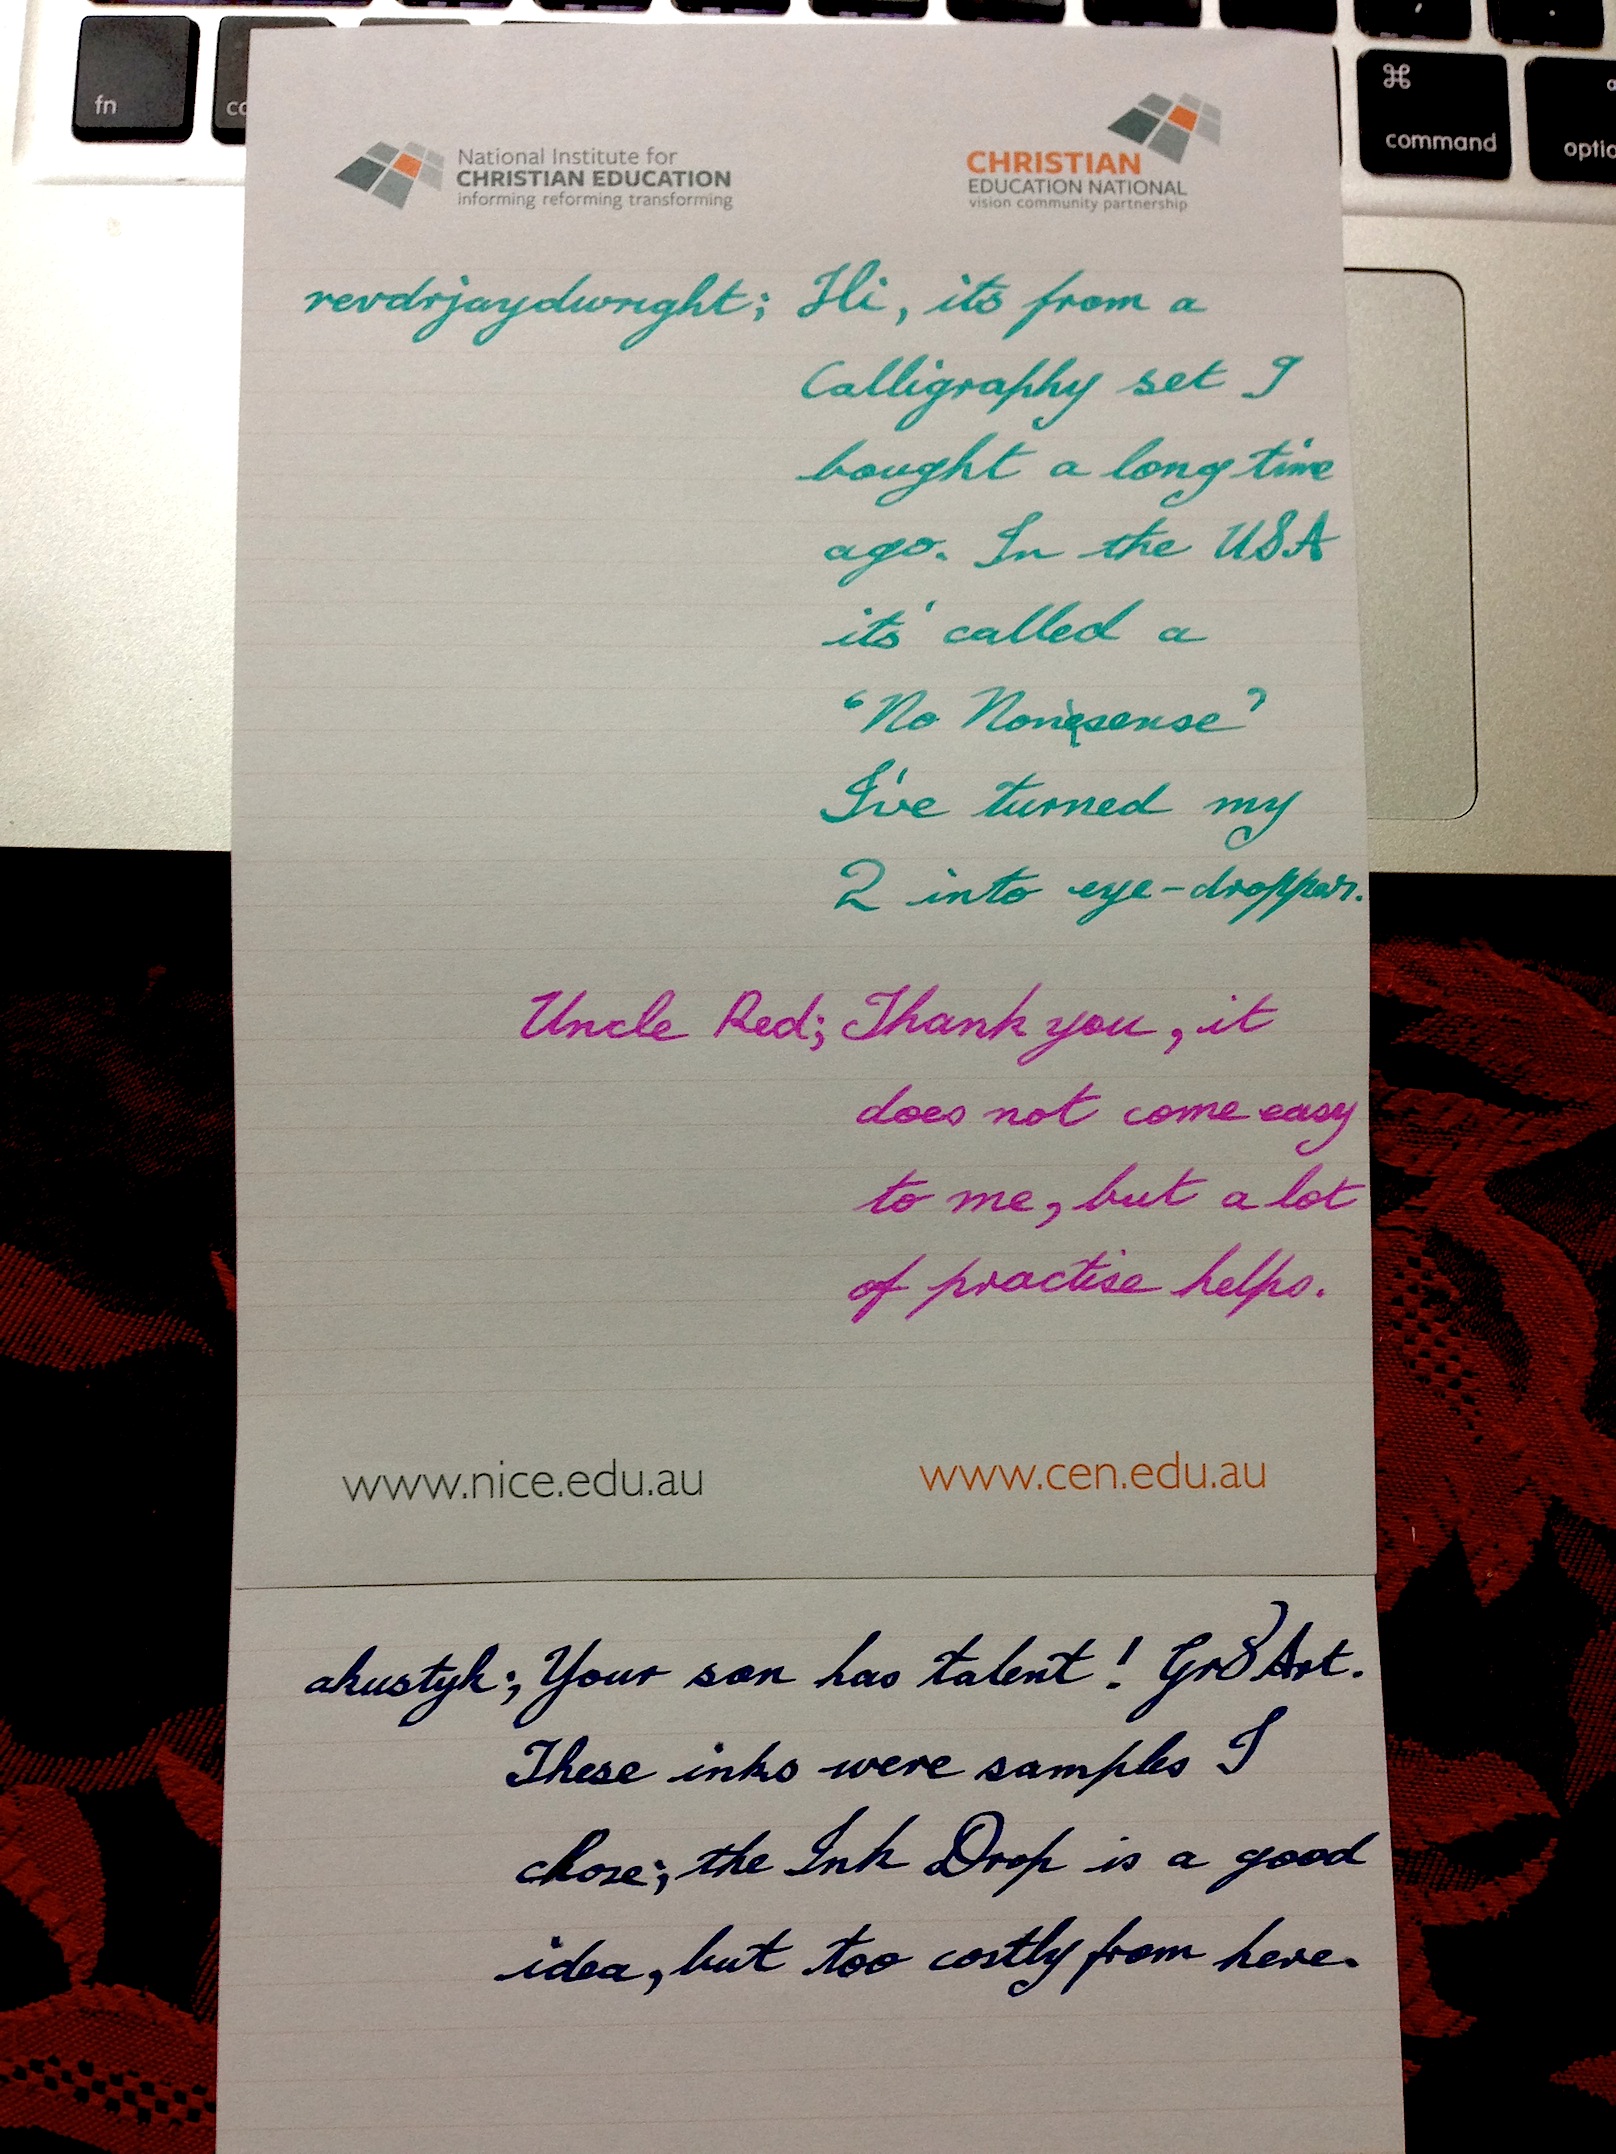 fn
command
National Institute for
CHRISTIAN EDUCATION
informing reforming transforming
CHRISTIAN
EDUCATION NATIONAL
vision community partnership
revdrjaydwright; Hi, its from a
Calligraphy set I
bought a long time
ago. In the USA
its' called a
"No Nonsense"
I've turned my
2 into eye-dropper.
Uncle Red; Thank you, it
does not come easy
to me, but a lot
of practise helps.
www.nice.edu.au www.cen.edu.au
akustyk; Your son has talent! Gr8 Art.
These inks were samples I
chose; the Ink Drop is a good
idea, but too costly from here.